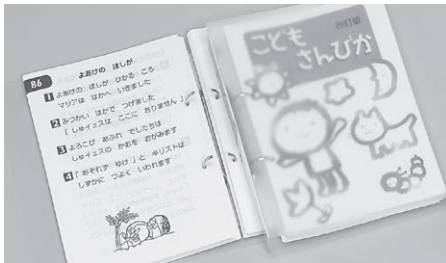 86
よあけの ほしが
1 よあけの ほしが ひかる ころ
マリアは はかへ いきました
2 みつかい はかで つげました
「しゅイェスは ここに おりません」
3 よろこび あふれ でしたちは
しゅイェスの かおを おがみます
4 「おそれず ゆけ」と キリストは
しずかに つよく いわれます
改訂版
こども
さんびか